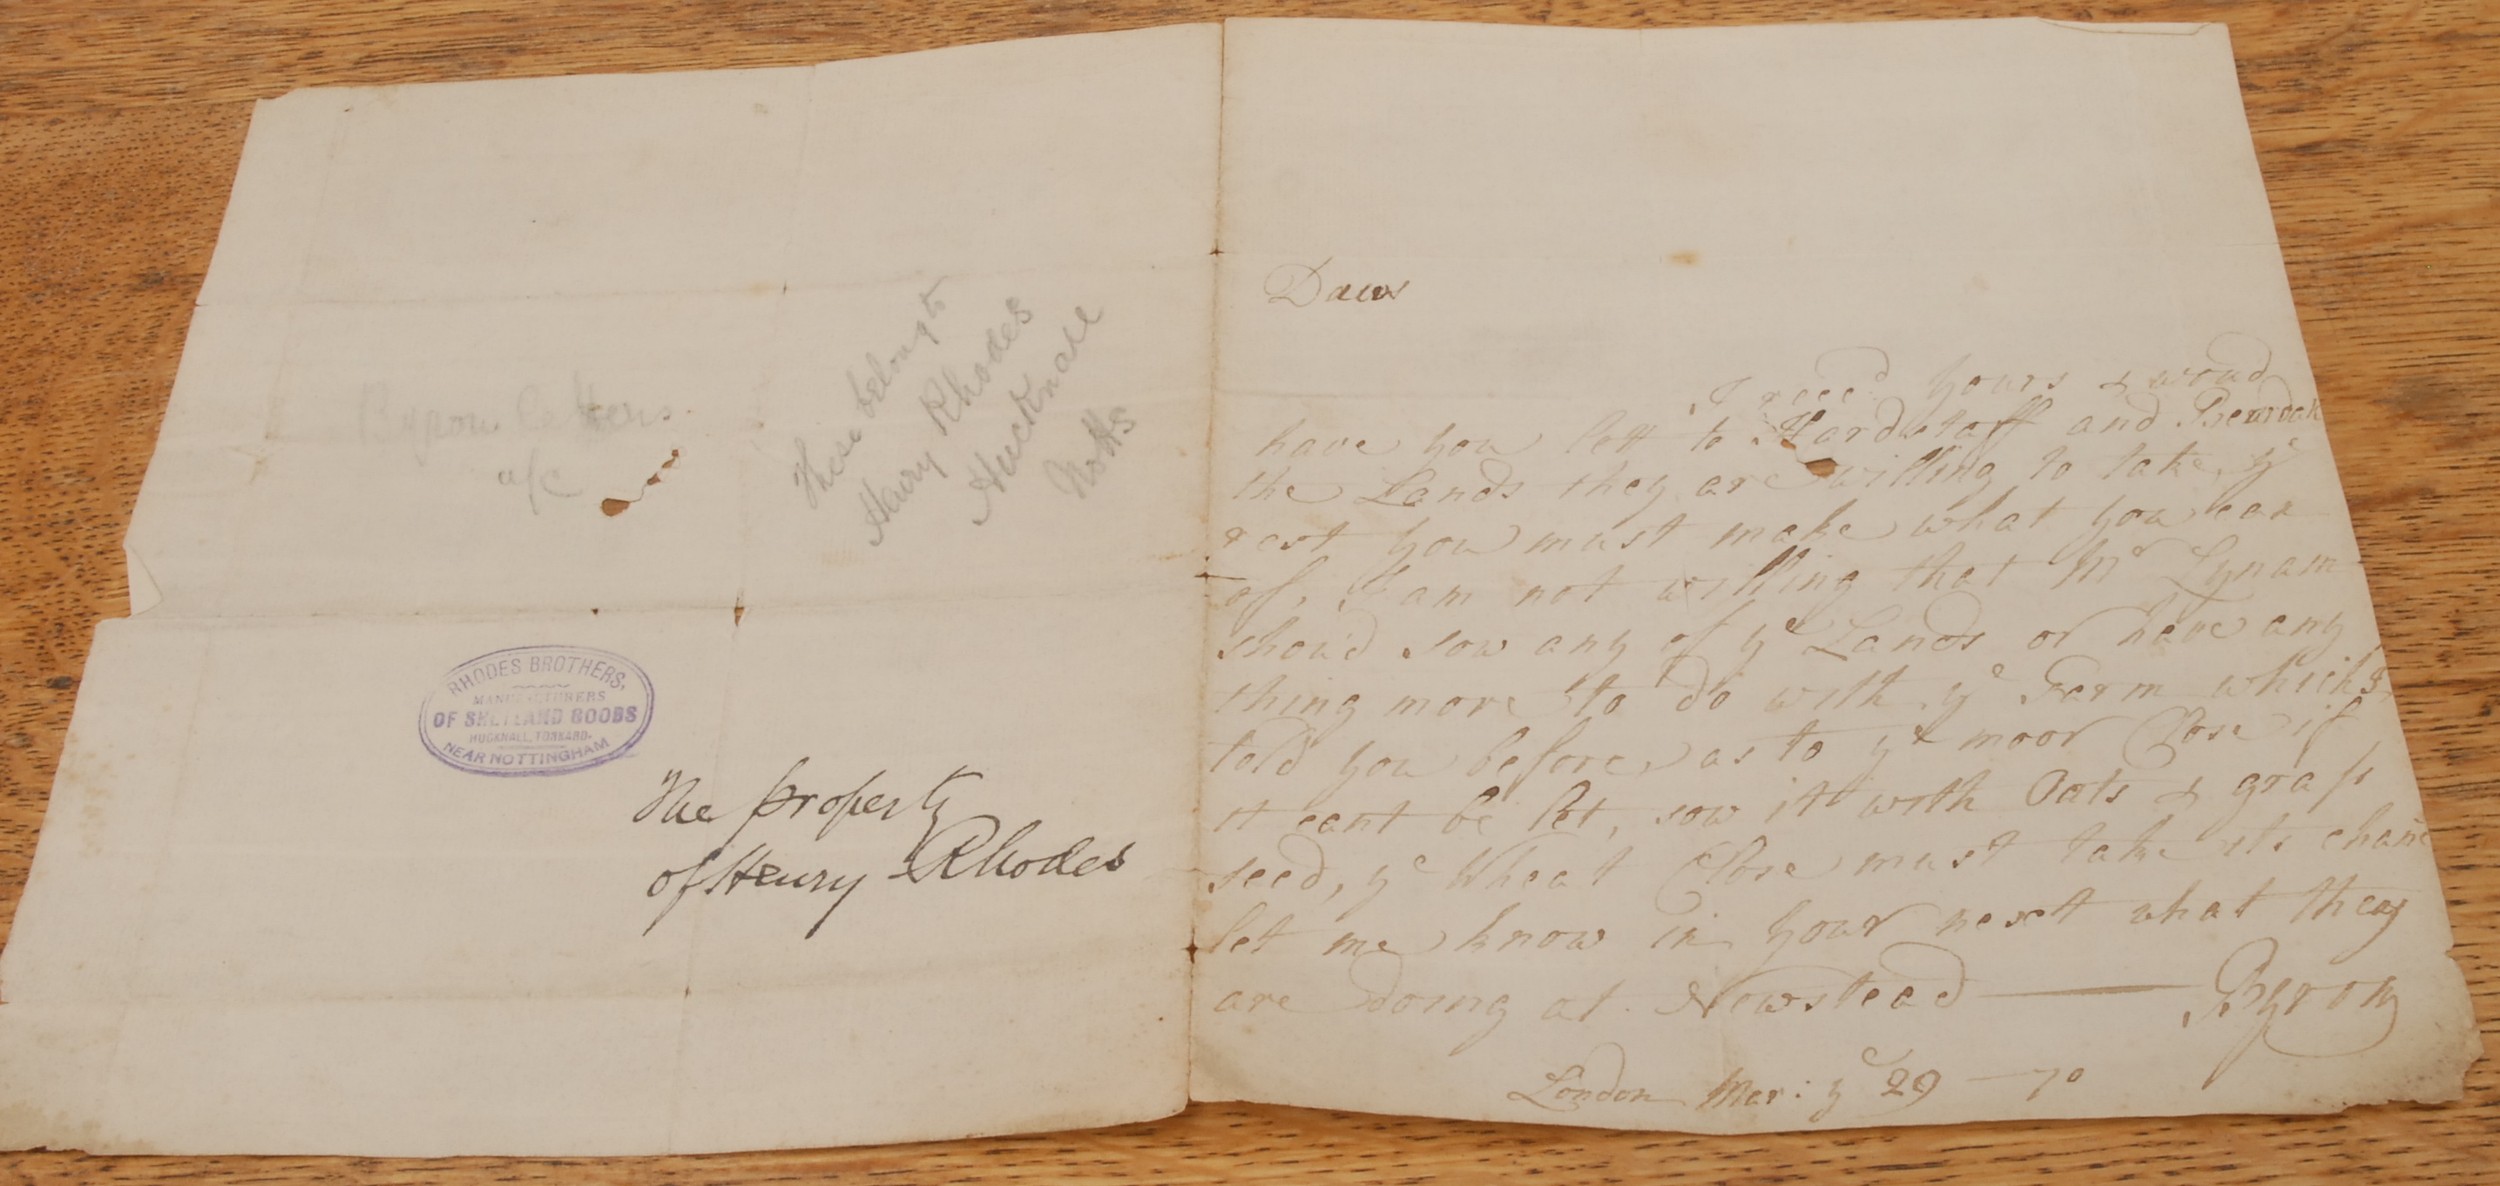 Byron Letters.
a/c
These belong to
Harry Rhodes
Hucknall
Notts
RHODES BROTHERS,
MANUFACTURERS
OF SHETLAND GOODS
HUCKNALL TORKARD.
NEAR NOTTINGHAM
The property
of Henry Rhodes
Daws
I reced yours & woud
have you lett to Hardstaff and
the Lands they are willing to take, ye
rest you must make what you can
of, I am not willing that Mr Lynam
shoud sow any of ye Lands or have any
thing more to do with ye Farm which I
told you before, as to ye moor Close if
it cant be let, sow it with Oats & grass
seed, ye Wheat Close must take its chance
lett me know in your next what they
are doing at Newstead — Byron
London Mar: ye 29 — 70